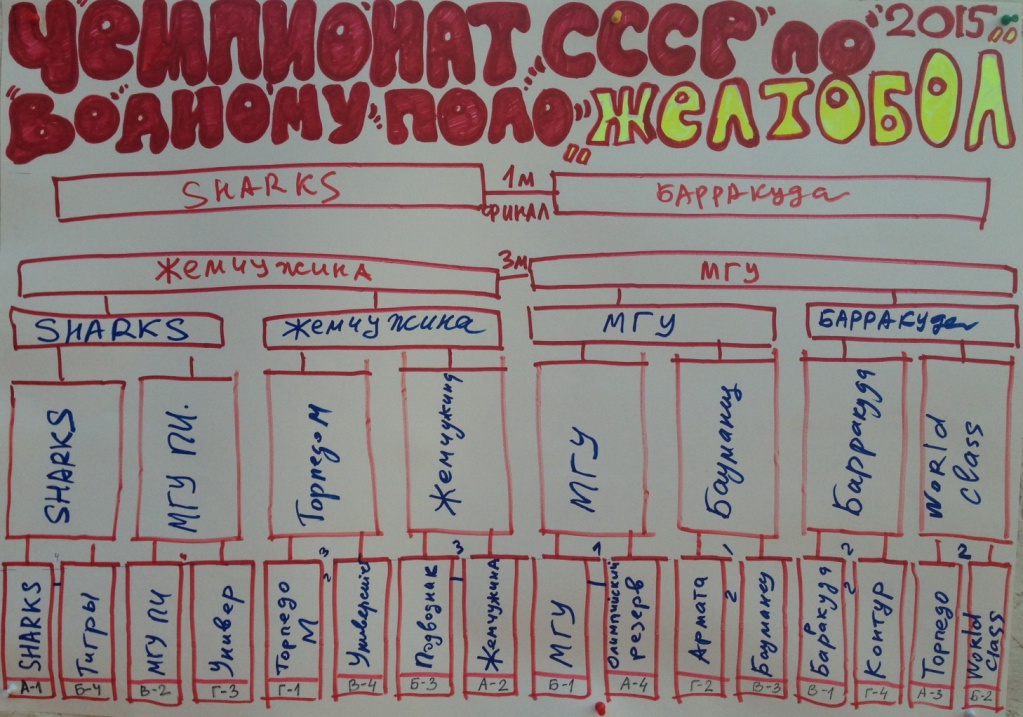 ЧЕМПИОНАТ СССР по "2015"
"ВОДНОМУ "ПОЛО" ЖЕЛТОБОЛ"
SHARKS 1м БАРРАКУДА
ФИНАЛ
ЖЕМЧУЖИНА 3м МГУ
SHARKS ЖЕМЧУЖИНА МГУ БАРРАКУДА
SHARKS
МГУ ПИ.
Торпедо М
Жемчужина
МГУ
Бауманец
Барракуда
World
Class
SHARKS
Тигры
МГУ ПИ
Универ
Торпедо
М
Подводник
Жемчужина
МГУ
Олимпийский
резерв
Армата
Бауманец
Баракуда
р
Контур
Торпедо
World
Class
А-1 Б-4 В-2 Г-3 Г-1 В-4 Б-3 А-2 Б-1 А-4 Г-2 В-3 В-1 Г-4 А-3 Б-2